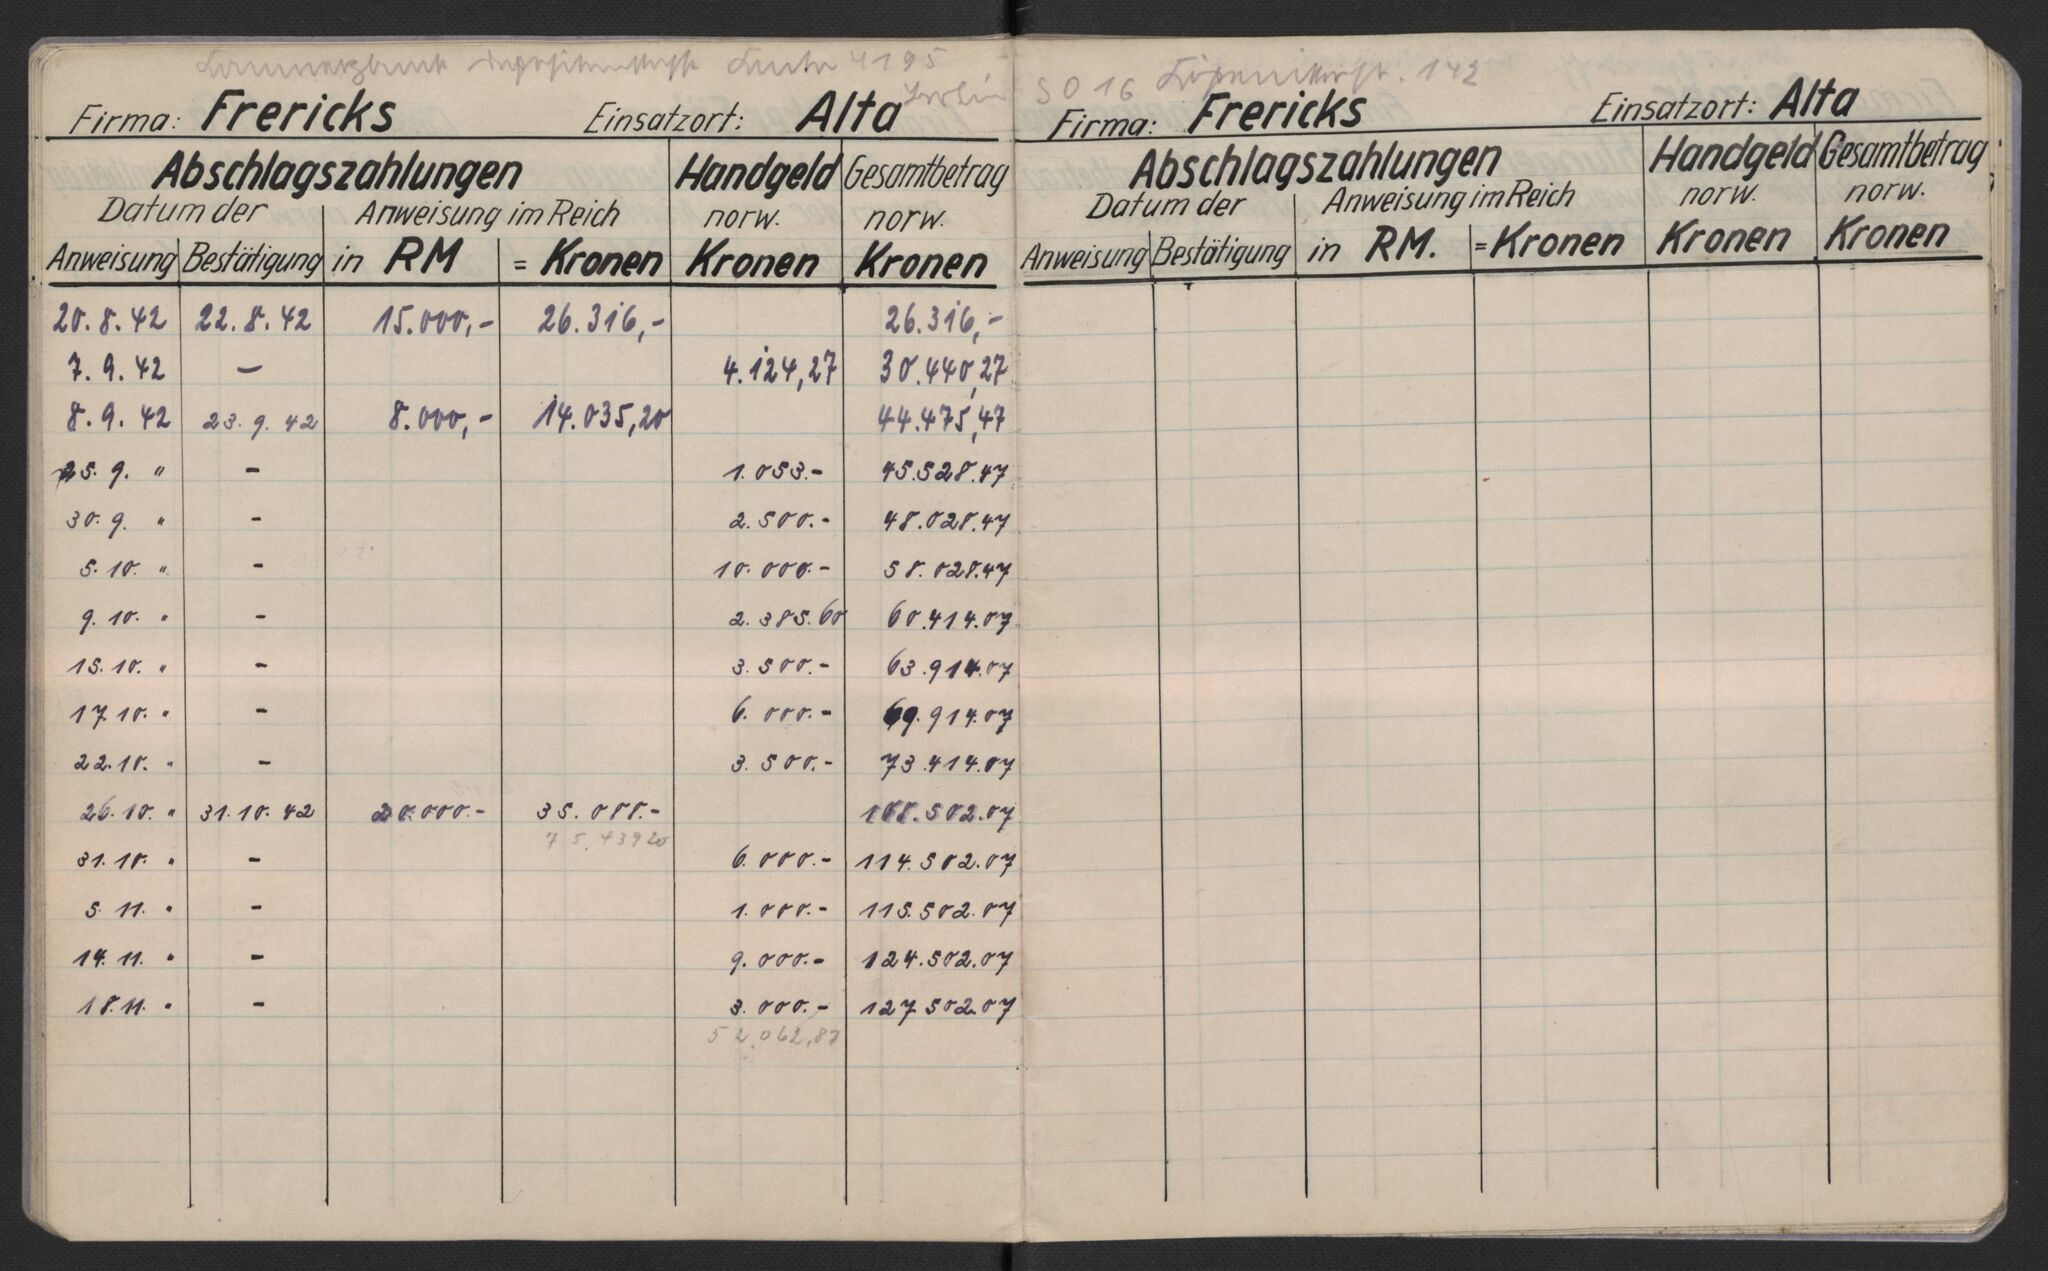 Commerzbank Depositenkasse Konto 4195
Berlin SO 16 Köpenickerstr. 142
Firma: Frericks Einsatzort: Alta
Abschlagszahlungen Handgeld Gesamtbetrag
Datum der Anweisung im Reich norw. norw.
Anweisung Bestätigung in RM = Kronen Kronen Kronen
20.8.42 22.8.42 15.000,- 26.316,- 26.316,-
7.9.42 – 4.124,27 30.440,27
8.9.42 23.9.42 8.000,- 14.035,20 44.475,47
25.9. " – 1.053.- 45.528.47
30.9. " – 2.500.- 48.028.47
5.10. " – 10.000.- 58.028.47
9.10. " – 2.385.60 60.414.07
15.10. " – 3.500.- 63.914.07
17.10. " – 6.000.- 69.914.07
22.10. " – 3.500.- 73.414.07
26.10. " 31.10.42 20.000.- 35.088.- 108.502.07
75.43920
31.10. " – 6.000.- 114.502.07
5.11. " – 1.000.- 115.502.07
14.11. " – 9.000.- 124.502.07
18.11. " – 3.000.- 127.502.07
52.062,87
Firma: Frericks Einsatzort: Alta
Abschlagszahlungen Handgeld Gesamtbetrag
Datum der Anweisung im Reich norw. norw.
Anweisung Bestätigung in RM. = Kronen Kronen Kronen